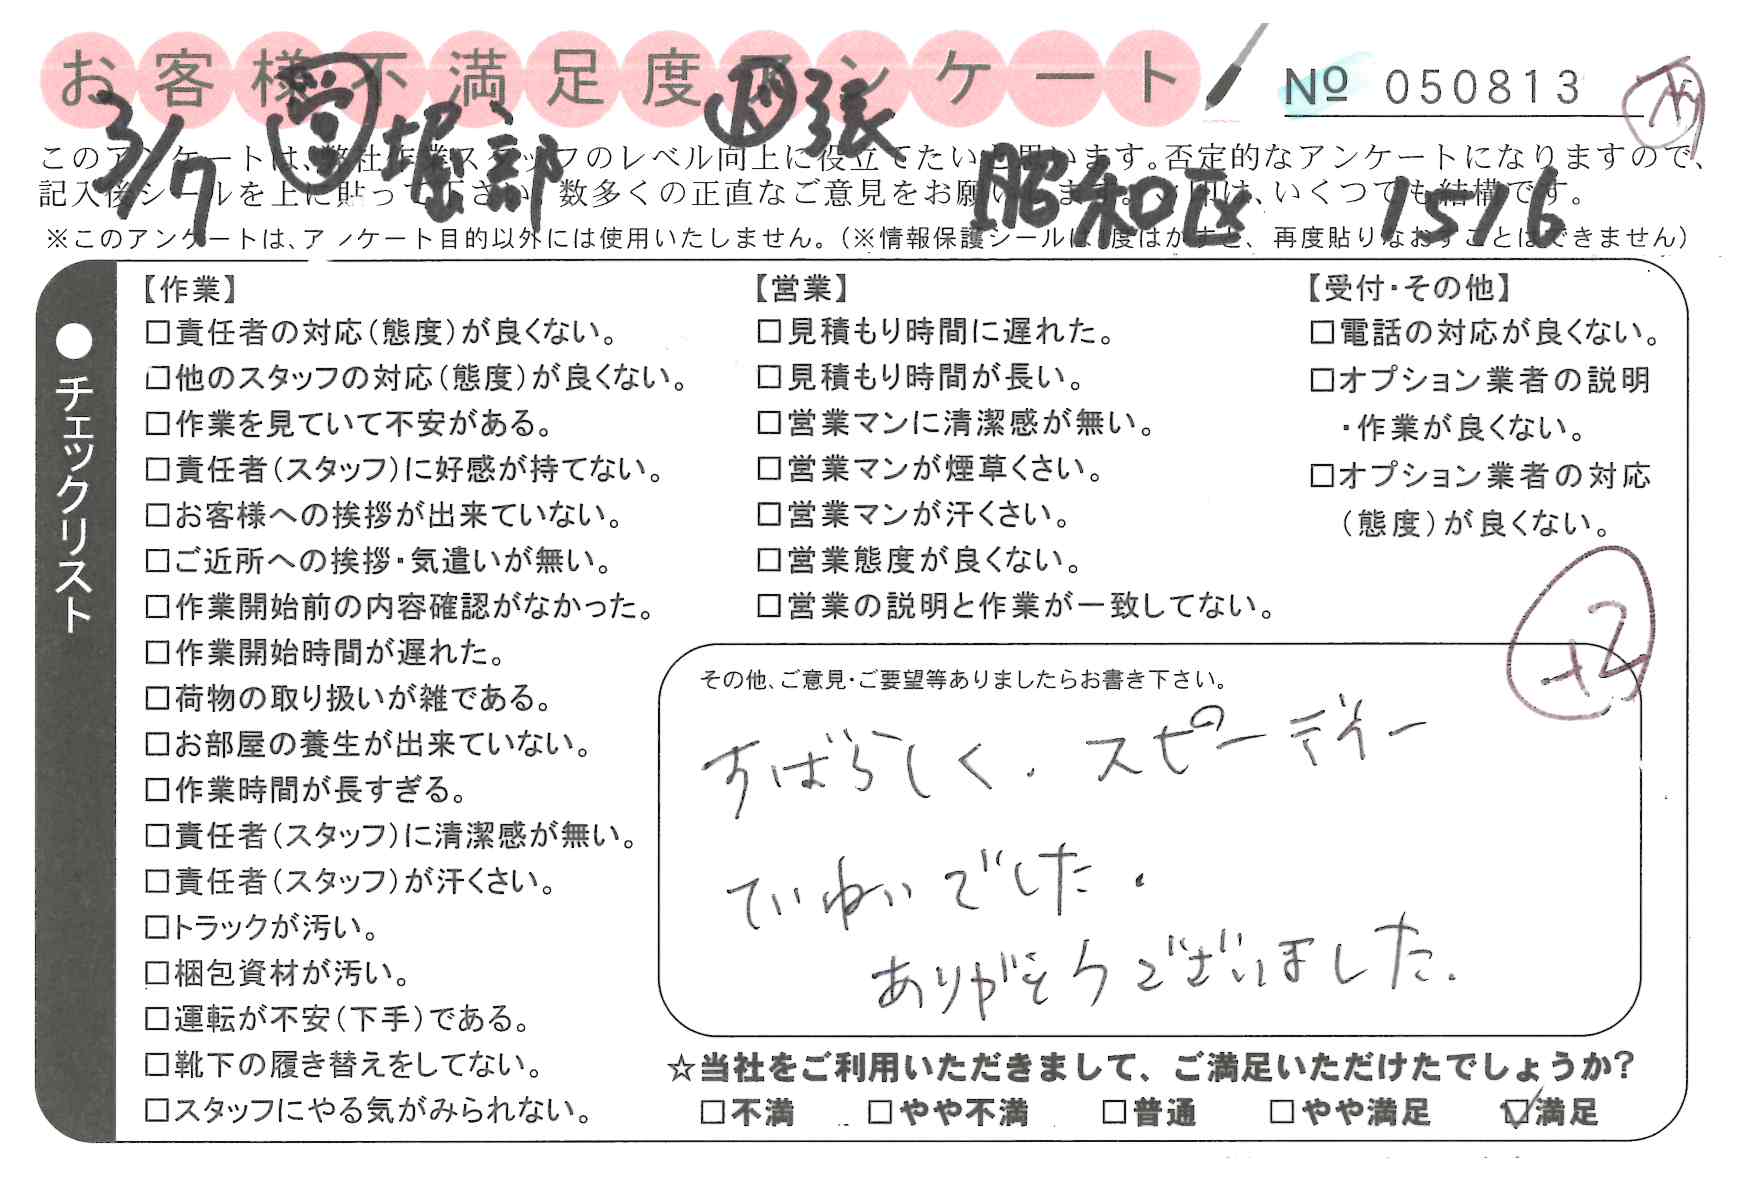 お客様不満足度アンケート
№ 050813
3/7 堀部 張 昭和区 1516
このアンケートは、弊社作業スタッフのレベル向上に役立てたいと思います。否定的なアンケートになりますので、
記入後シールを上に貼って下さい。数多くの正直なご意見をお願いします。✓印は、いくつでも結構です。
※このアンケートは、アンケート目的以外には使用いたしません。(※情報保護シールは1度はがすと、再度貼りなおすことはできません)
●チェックリスト
【作業】
□責任者の対応(態度)が良くない。
□他のスタッフの対応(態度)が良くない。
□作業を見ていて不安がある。
□責任者(スタッフ)に好感が持てない。
□お客様への挨拶が出来ていない。
□ご近所への挨拶・気遣いが無い。
□作業開始前の内容確認がなかった。
□作業開始時間が遅れた。
□荷物の取り扱いが雑である。
□お部屋の養生が出来ていない。
□作業時間が長すぎる。
□責任者(スタッフ)に清潔感が無い。
□責任者(スタッフ)が汗くさい。
□トラックが汚い。
□梱包資材が汚い。
□運転が不安(下手)である。
□靴下の履き替えをしてない。
□スタッフにやる気がみられない。
【営業】
□見積もり時間に遅れた。
□見積もり時間が長い。
□営業マンに清潔感が無い。
□営業マンが煙草くさい。
□営業マンが汗くさい。
□営業態度が良くない。
□営業の説明と作業が一致してない。
【受付・その他】
□電話の対応が良くない。
□オプション業者の説明
・作業が良くない。
□オプション業者の対応
(態度)が良くない。
+2
その他、ご意見・ご要望等ありましたらお書き下さい。
すばらしく、スピーディー
ていねいでした。
ありがとうございました。
☆当社をご利用いただきまして、ご満足いただけたでしょうか?
□不満 □やや不満 □普通 □やや満足 ☑満足